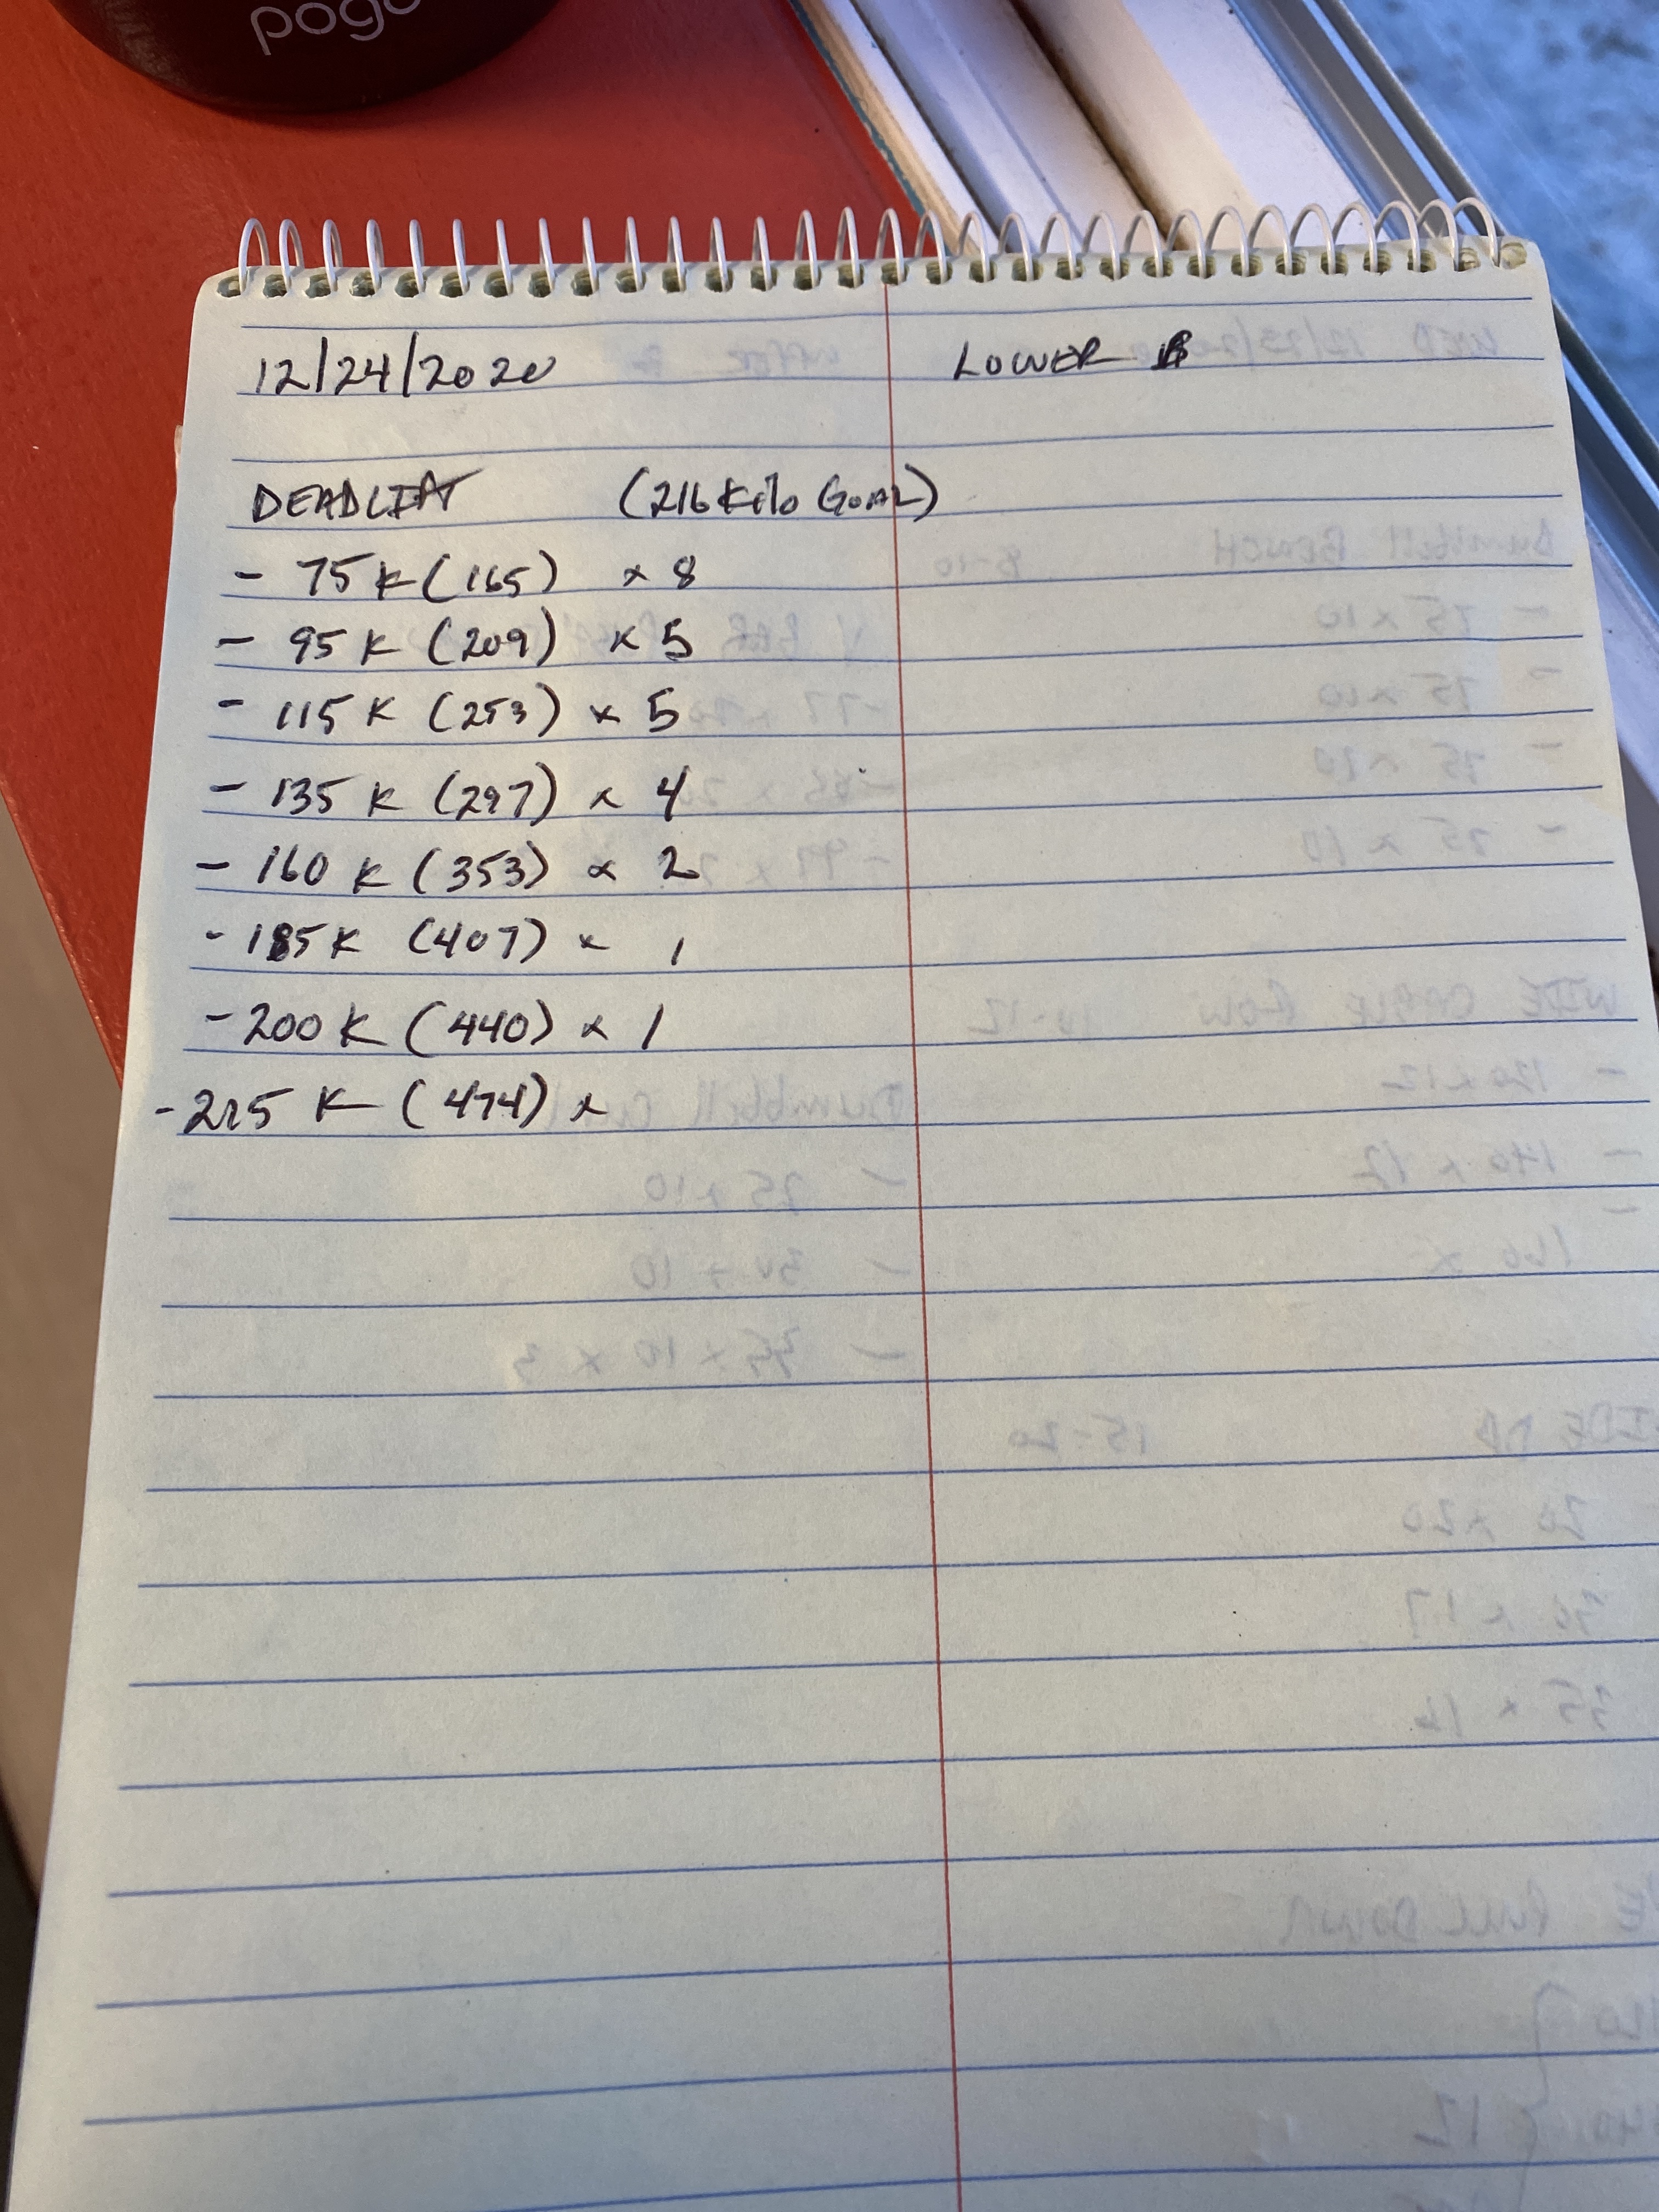 pogo
12/24/2020 LOWER B
DEADLIFT (216 Kilo GOAL)
- 75 K (165) x 8
- 95 K (209) x 5
- 115 K (253) x 5
- 135 K (297) x 4
- 160 K (353) x 2
- 185 K (407) x 1
- 200 K (440) x 1
- 215 K (474) x